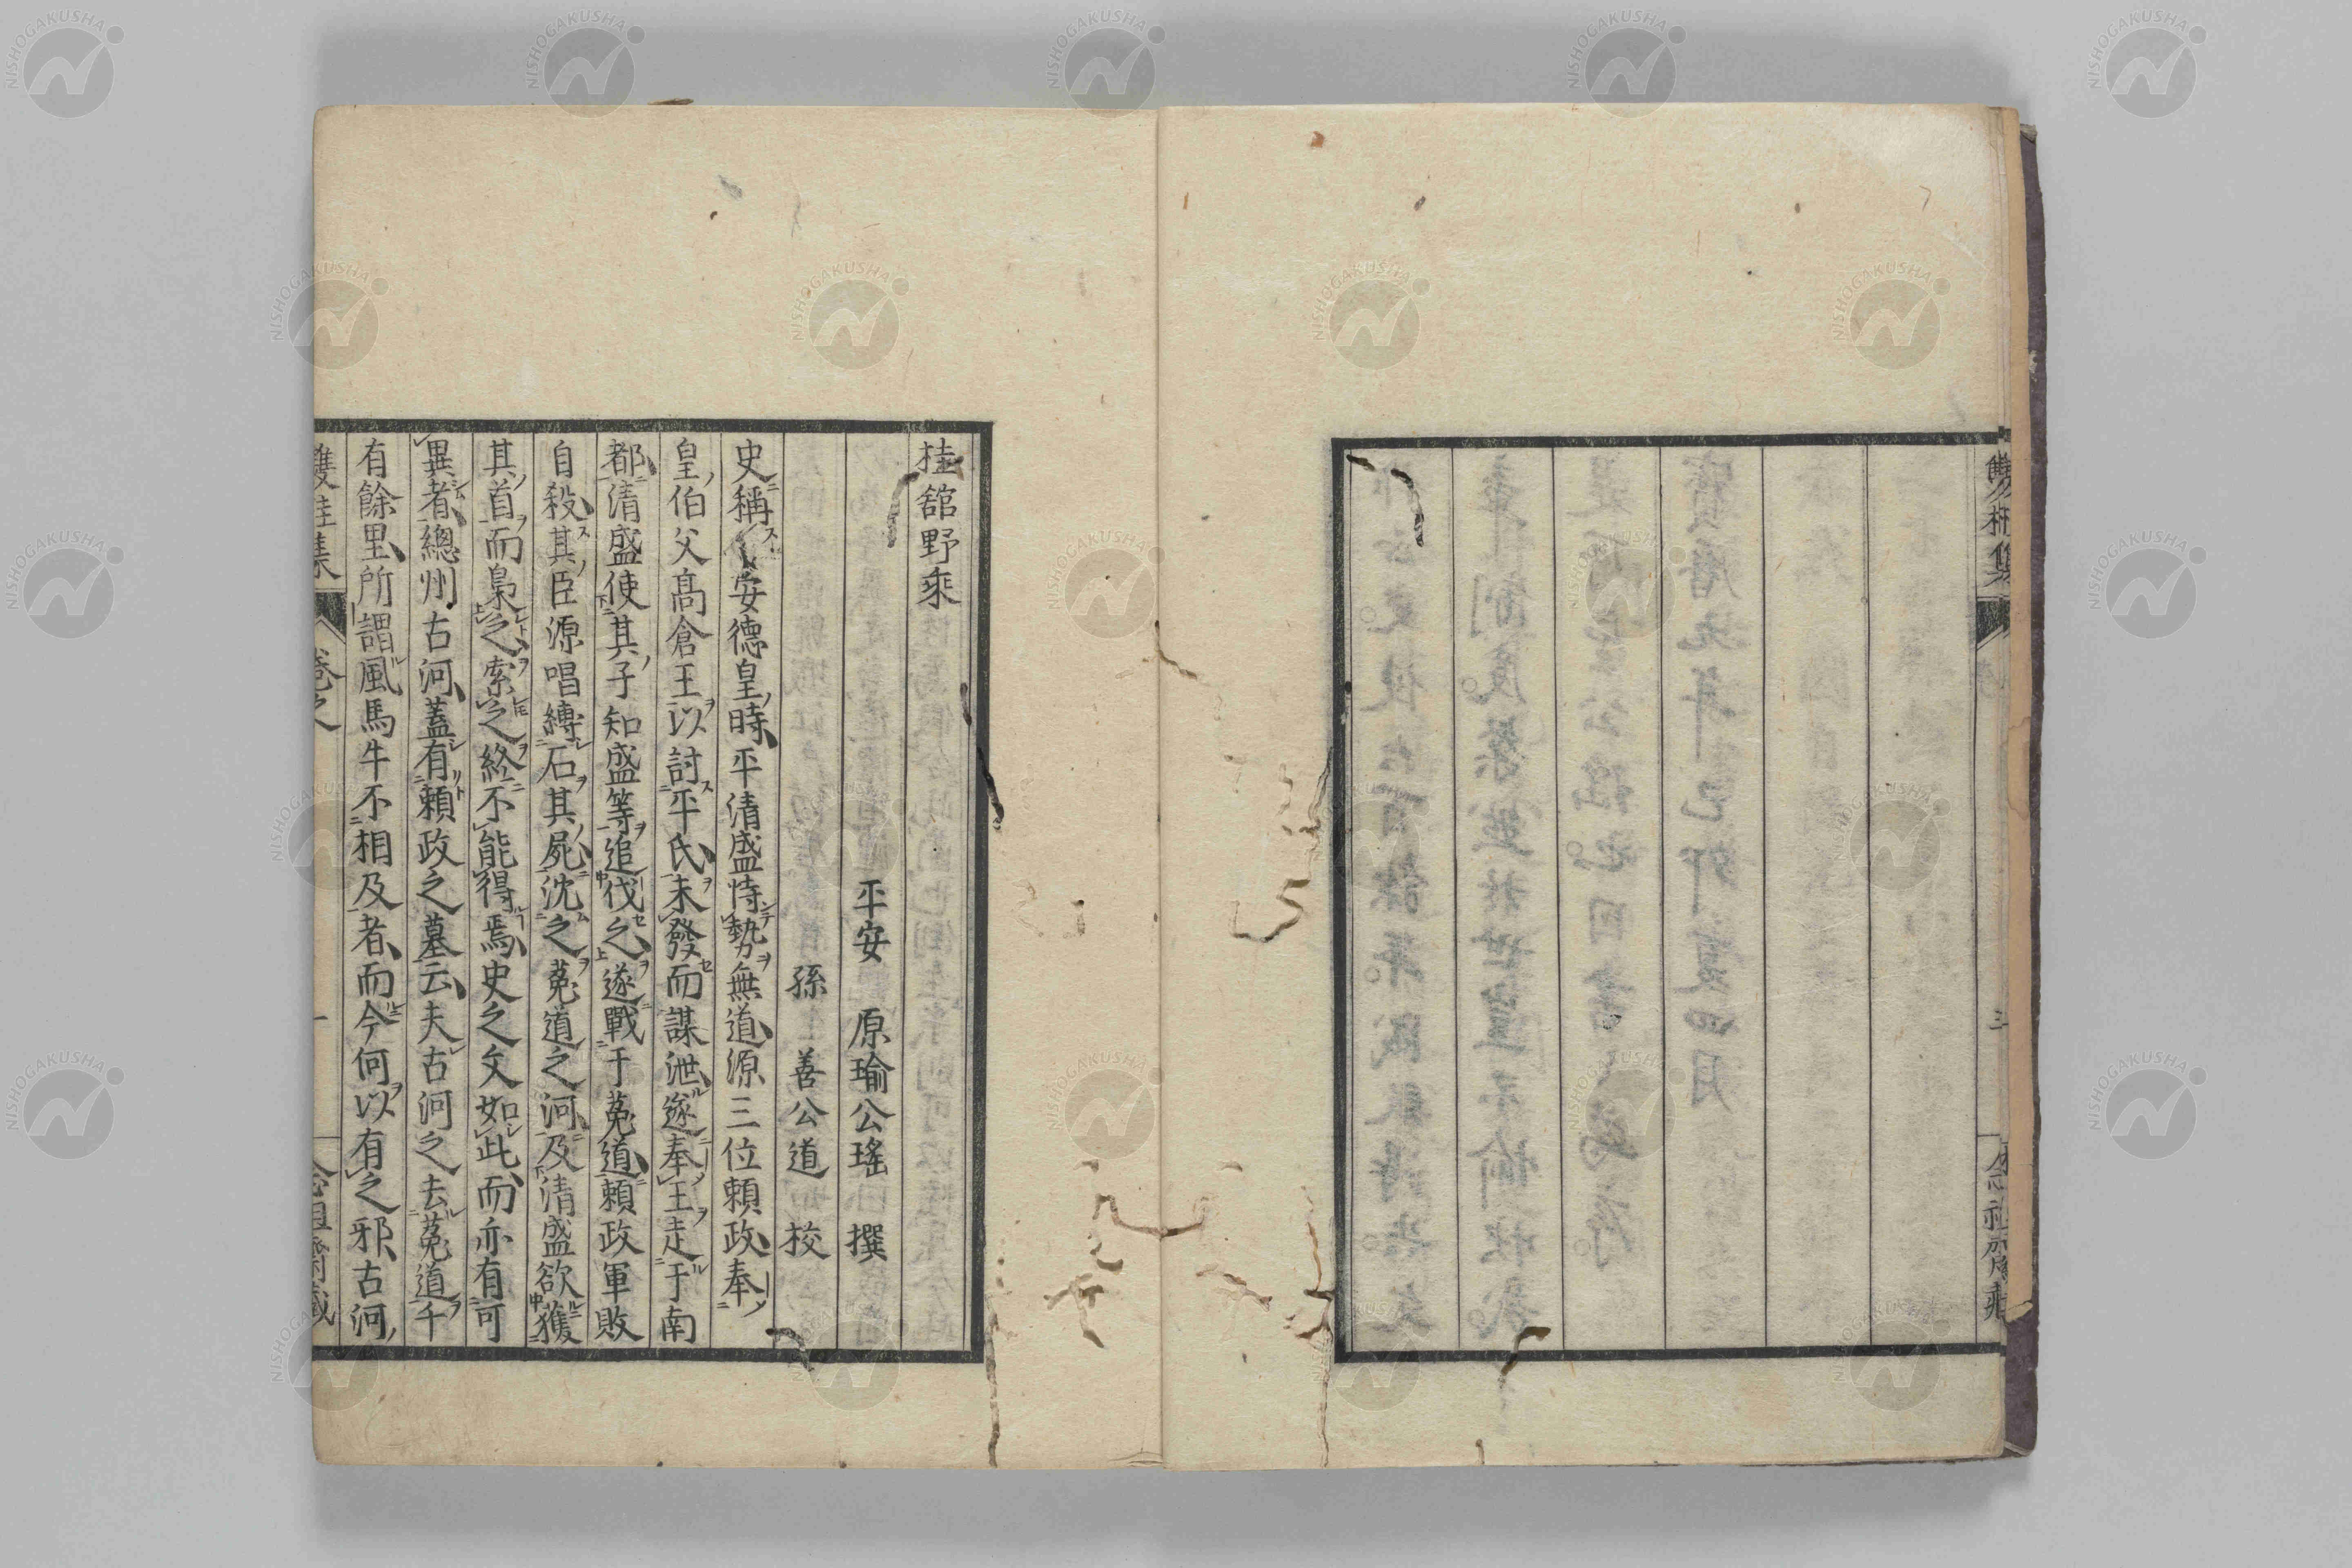 雙桂集
序
三
念祖齋藏
桂舘野乘
平安 原瑜公瑤 撰
孫 善公道 校
史稱安德皇時平清盛恃勢無道源三位頼政奉
皇伯父高倉王以討平氏未發而謀泄遂奉王走于南
都清盛使其子知盛等追伐之遂戰于菟道頼政軍敗
自殺其臣源唱縛石其屍沈之菟道之河及清盛欲獲
其首而梟之索之終不能得焉史之文如此而亦有可
異者總州古河蓋有頼政之墓云夫古河之去菟道千
有餘里所謂風馬牛不相及者而今何以有之邪古河
雙桂集
卷之
一
念祖齋藏
NISHOGAKUSHA